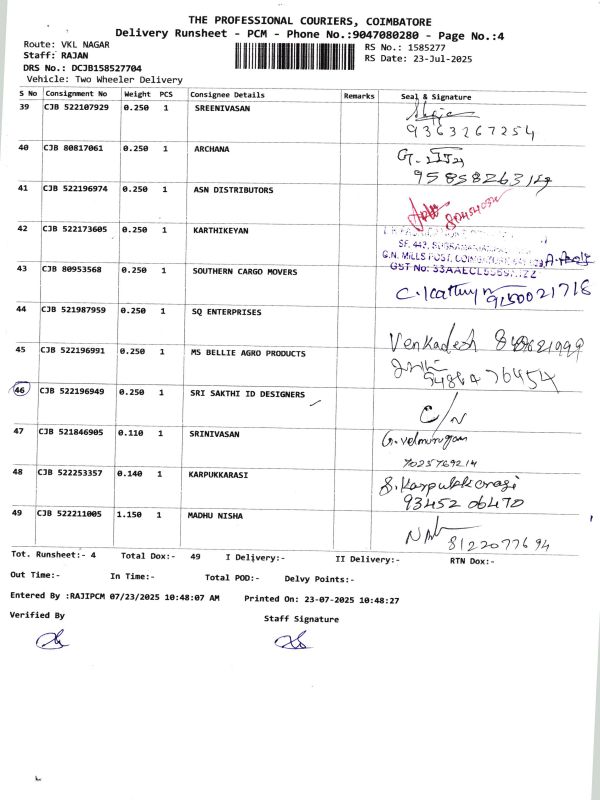 THE PROFESSIONAL COURIERS, COIMBATORE
Delivery Runsheet - PCM - Phone No.:9047080280 - Page No.:4
Route: VKL NAGAR
RS No.: 1585277
Staff: RAJAN
RS Date: 23-Jul-2025
DRS No.: DCJB158527704
Vehicle: Two Wheeler Delivery
S No Consignment No Weight PCS Consignee Details Remarks Seal & Signature
39 CJB 522107929 0.250 1 SREENIVASAN
9363267254
40 CJB 80817061 0.250 1 ARCHANA
G.
41 CJB 522196974 0.250 1 ASN DISTRIBUTORS
42 CJB 522173605 0.250 1 KARTHIKEYAN
G.N. MILLS POST,
GST No:
43 CJB 80953568 0.250 1 SOUTHERN CARGO MOVERS
9150021718
44 CJB 521987959 0.250 1 SQ ENTERPRISES
Venkadesh
45 CJB 522196991 0.250 1 MS BELLIE AGRO PRODUCTS
46 CJB 522196949 0.250 1 SRI SAKTHI ID DESIGNERS
C/N
47 CJB 521846905 0.110 1 SRINIVASAN
G.velmurugan
7025769214
48 CJB 522253357 0.140 1 KARPUKKARASI
93452 06470
49 CJB 522211005 1.150 1 MADHU NISHA
8122077694
Tot. Runsheet:- 4 Total Dox:- 49 I Delivery:- II Delivery:- RTN Dox:-
Out Time:- In Time:- Total POD:- Delvy Points:-
Entered By :RAJIPCM 07/23/2025 10:48:07 AM Printed On: 23-07-2025 10:48:27
Verified By Staff Signature